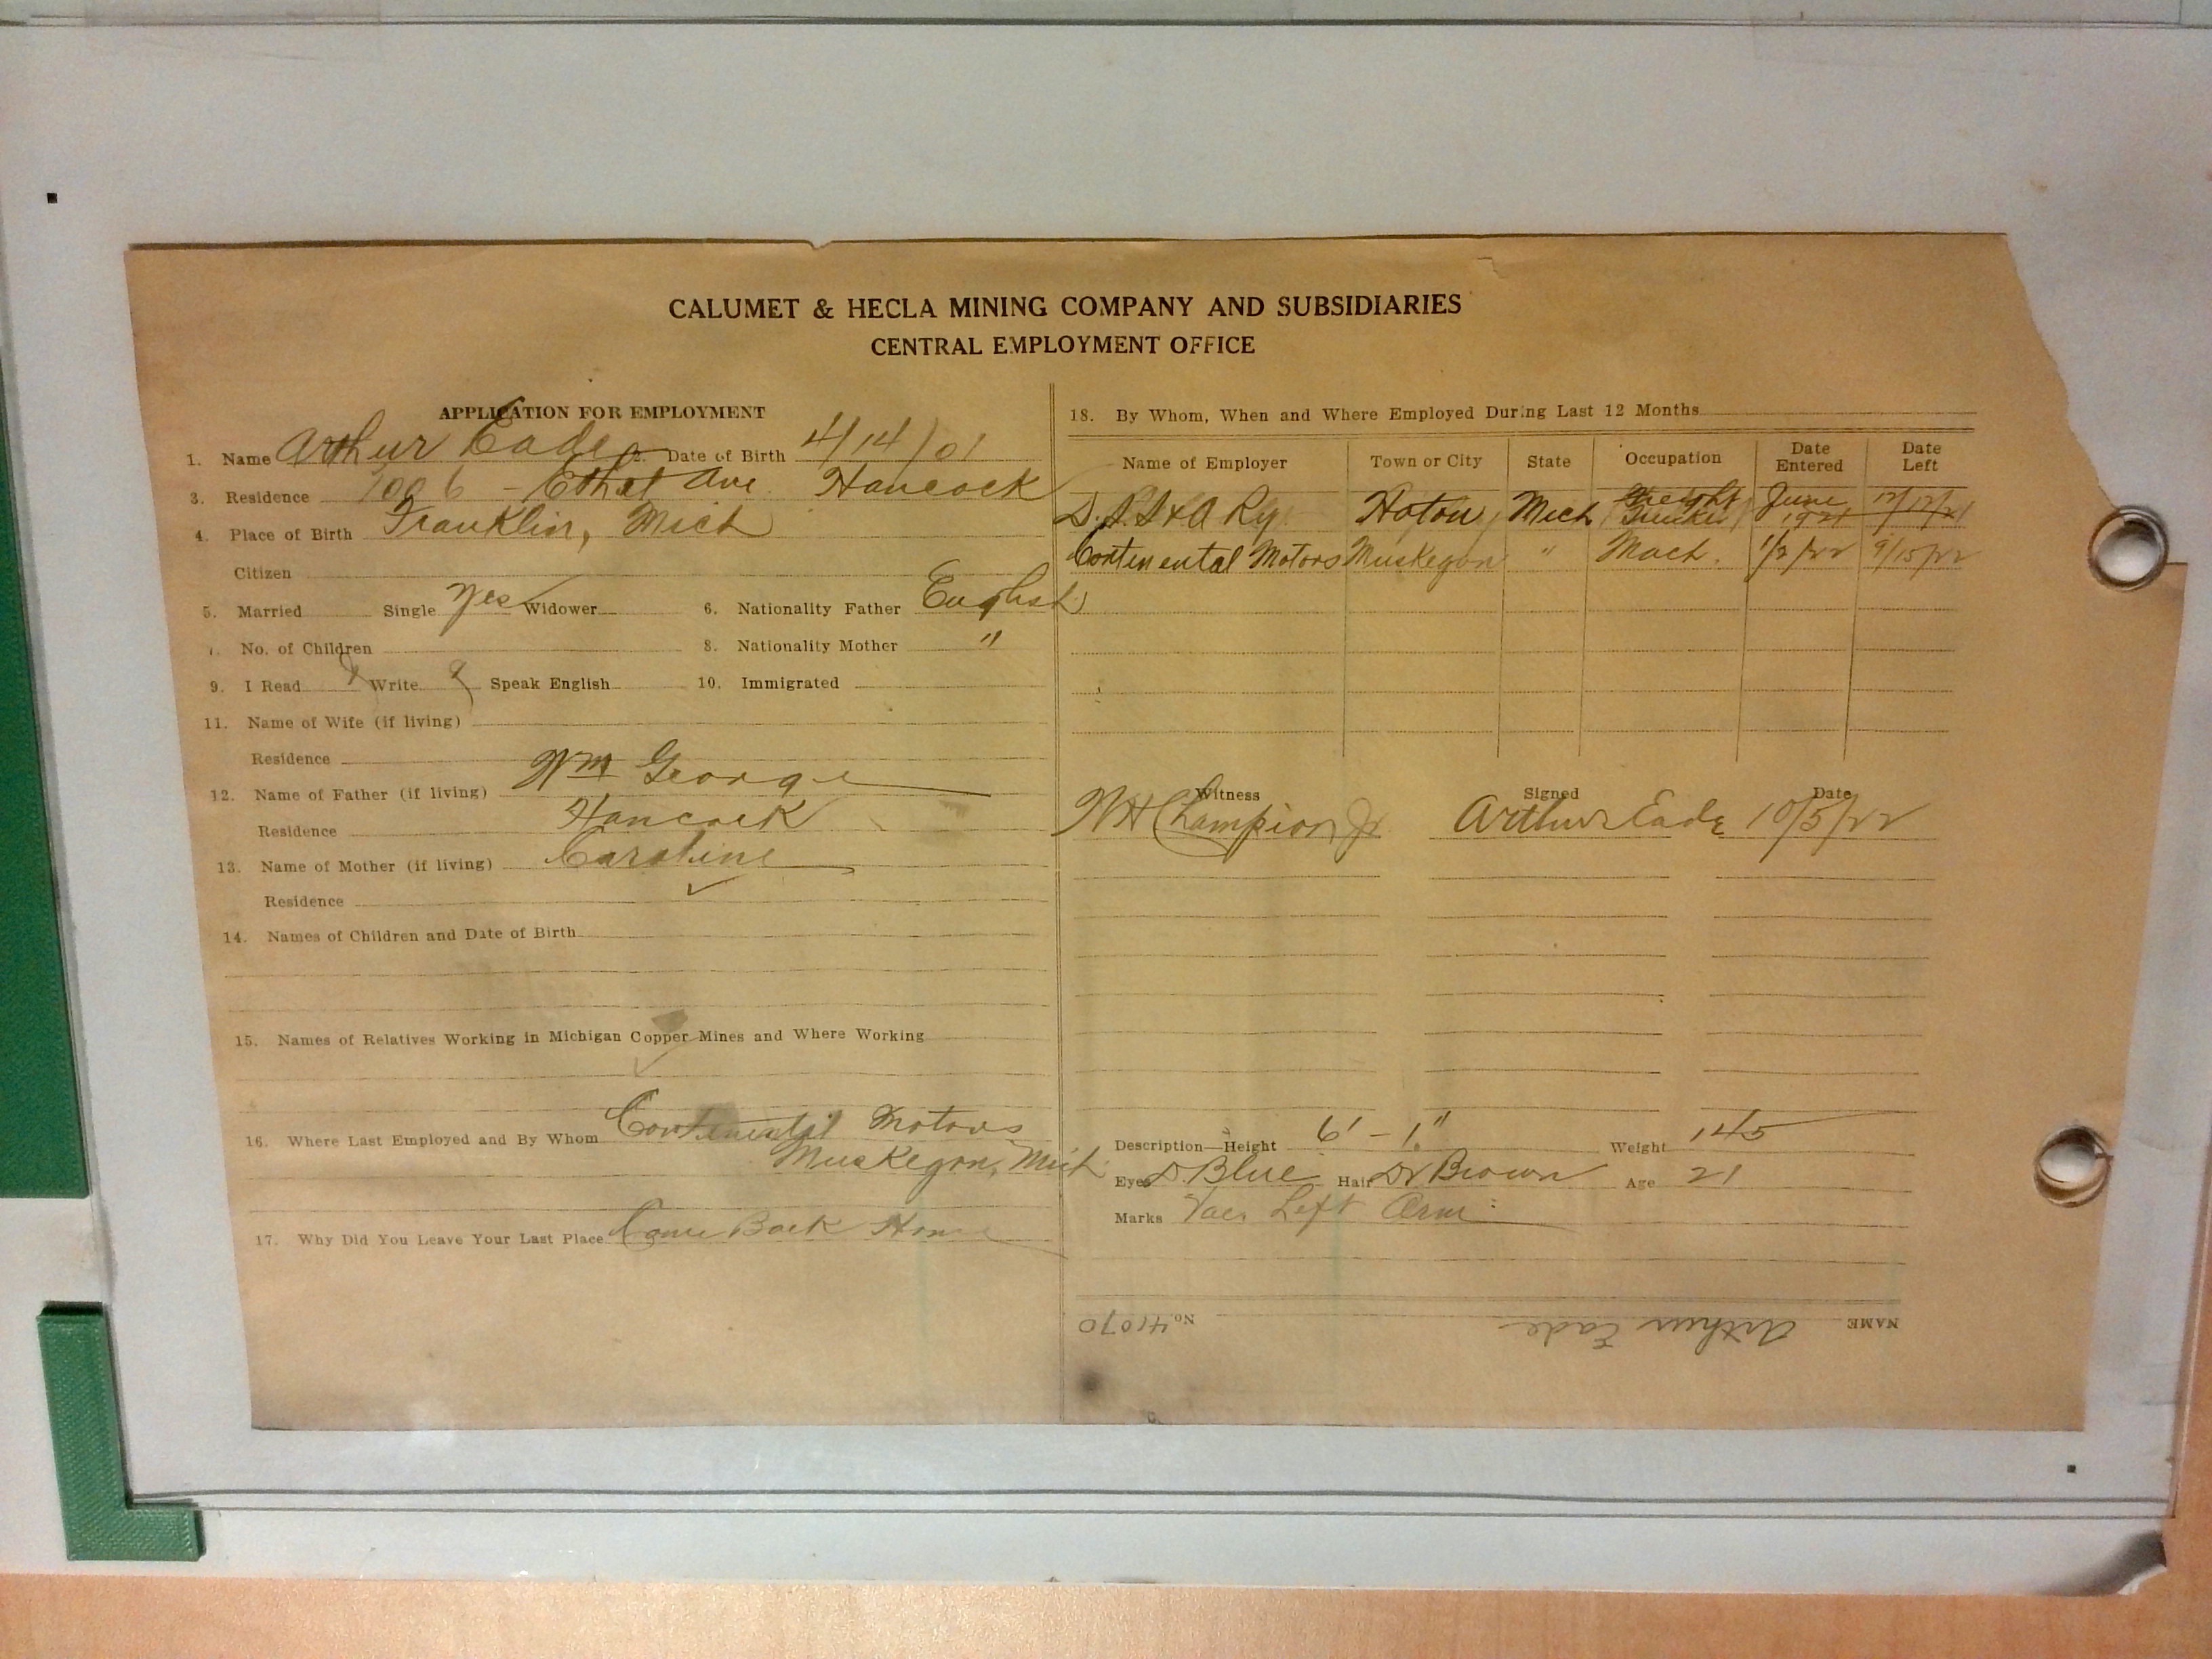 CALUMET & HECLA MINING COMPANY AND SUBSIDIARIES
CENTRAL EMPLOYMENT OFFICE
APPLICATION FOR EMPLOYMENT
1. Name Arthur Eade 2. Date of Birth 4/14/01
3. Residence 1006 - Ethel Ave. Hancock
4. Place of Birth Franklin, Mich
Citizen
5. Married Single Yes Widower 6. Nationality Father English
7. No. of Children 8. Nationality Mother "
9. I Read Write Speak English 10. Immigrated
11. Name of Wife (if living)
Residence
12. Name of Father (if living) Wm George
Residence Hancock
13. Name of Mother (if living) Caroline
Residence
14. Names of Children and Date of Birth
15. Names of Relatives Working in Michigan Copper Mines and Where Working
16. Where Last Employed and By Whom Continental Motors
Muskegon, Mich
17. Why Did You Leave Your Last Place Came Back Home
18. By Whom, When and Where Employed During Last 12 Months
Name of Employer Town or City State Occupation Date Entered Date Left
D.S.S & A Ry Hoton Mich Freight Trucker June 1921 12/12/21
Continental Motors Muskegon " Mach. 1/2/22 9/15/22
Witness Signed Date
WH Champion Jr. Arthur Eade 10/5/22
Description—Height 6' - 1" Weight 145
Eyes D. Blue Hair Dr Brown Age 21
Marks Vac. Left Arm
NAME Arthur Eade No. 41070